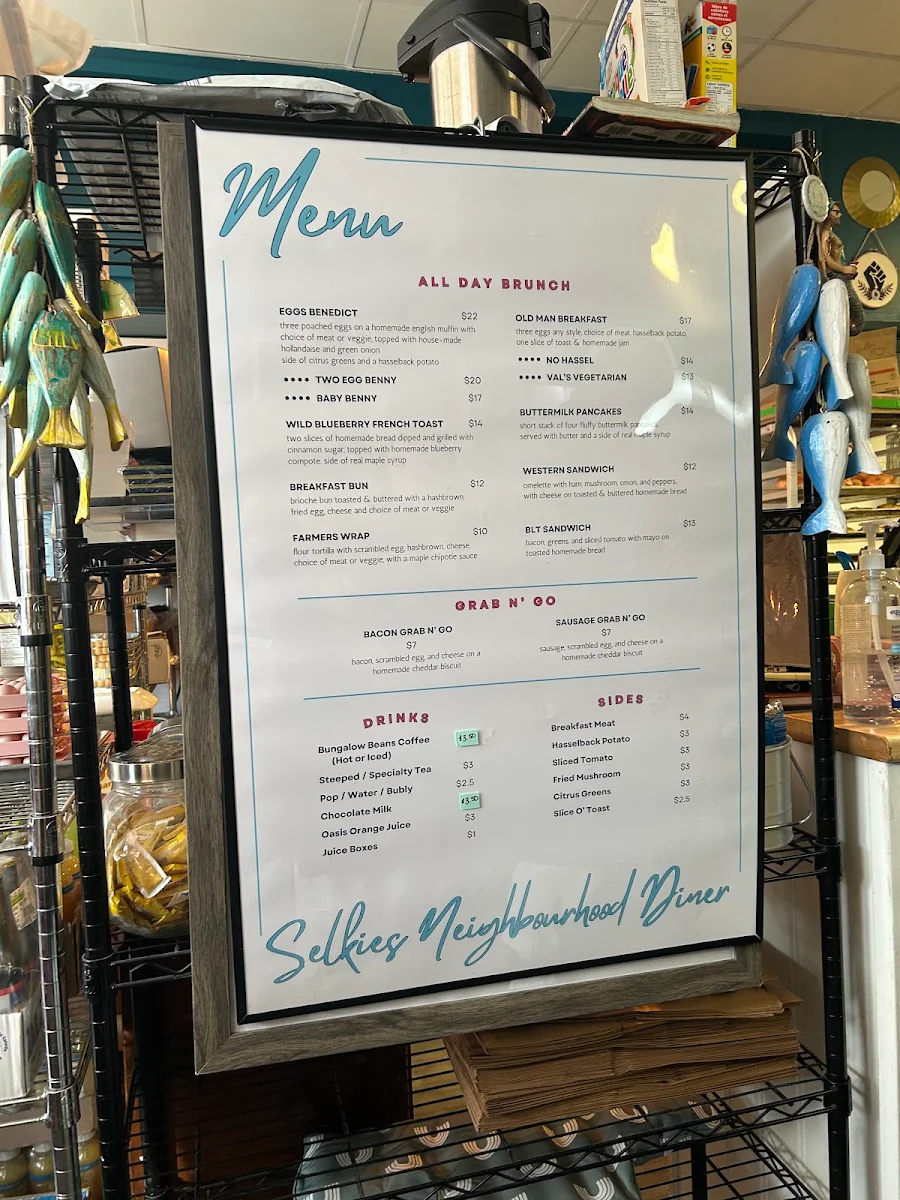 Menu
ALL DAY BRUNCH
EGGS BENEDICT $22
three poached eggs on a homemade english muffin with
choice of meat or veggie, topped with house-made
hollandaise and green onion
side of citrus greens and a hasselback potato
•••• TWO EGG BENNY $20
•••• BABY BENNY $17
WILD BLUEBERRY FRENCH TOAST $14
two slices of homemade bread dipped and grilled with
cinnamon sugar, topped with homemade blueberry
compote. side of real maple syrup
BREAKFAST BUN $12
brioche bun toasted & buttered with a hashbrown,
fried egg, cheese and choice of meat or veggie
FARMERS WRAP $10
flour tortilla with scrambled egg, hashbrown, cheese,
choice of meat or veggie, with a maple chipotle sauce
OLD MAN BREAKFAST $17
three eggs any style, choice of meat, hasselback potato,
one slice of toast & homemade jam
•••• NO HASSEL $14
•••• VAL'S VEGETARIAN $13
BUTTERMILK PANCAKES $14
short stack of four fluffy buttermilk pancakes
served with butter and a side of real maple syrup
WESTERN SANDWICH $12
omelette with ham, mushroom, onion, and peppers,
with cheese on toasted & buttered homemade bread
BLT SANDWICH $13
bacon, greens, and sliced tomato with mayo on
toasted homemade bread
GRAB N' GO
BACON GRAB N' GO
$7
bacon, scrambled egg, and cheese on a
homemade cheddar biscuit
SAUSAGE GRAB N' GO
$7
sausage, scrambled egg, and cheese on a
homemade cheddar biscuit
DRINKS
Bungalow Beans Coffee $3.50
(Hot or Iced)
Steeped / Specialty Tea $3
Pop / Water / Bubly $2.5
Chocolate Milk $3.50
Oasis Orange Juice $3
Juice Boxes $1
SIDES
Breakfast Meat $4
Hasselback Potato $3
Sliced Tomato $3
Fried Mushroom $3
Citrus Greens $3
Slice O' Toast $2.5
Selkies Neighbourhood Diner